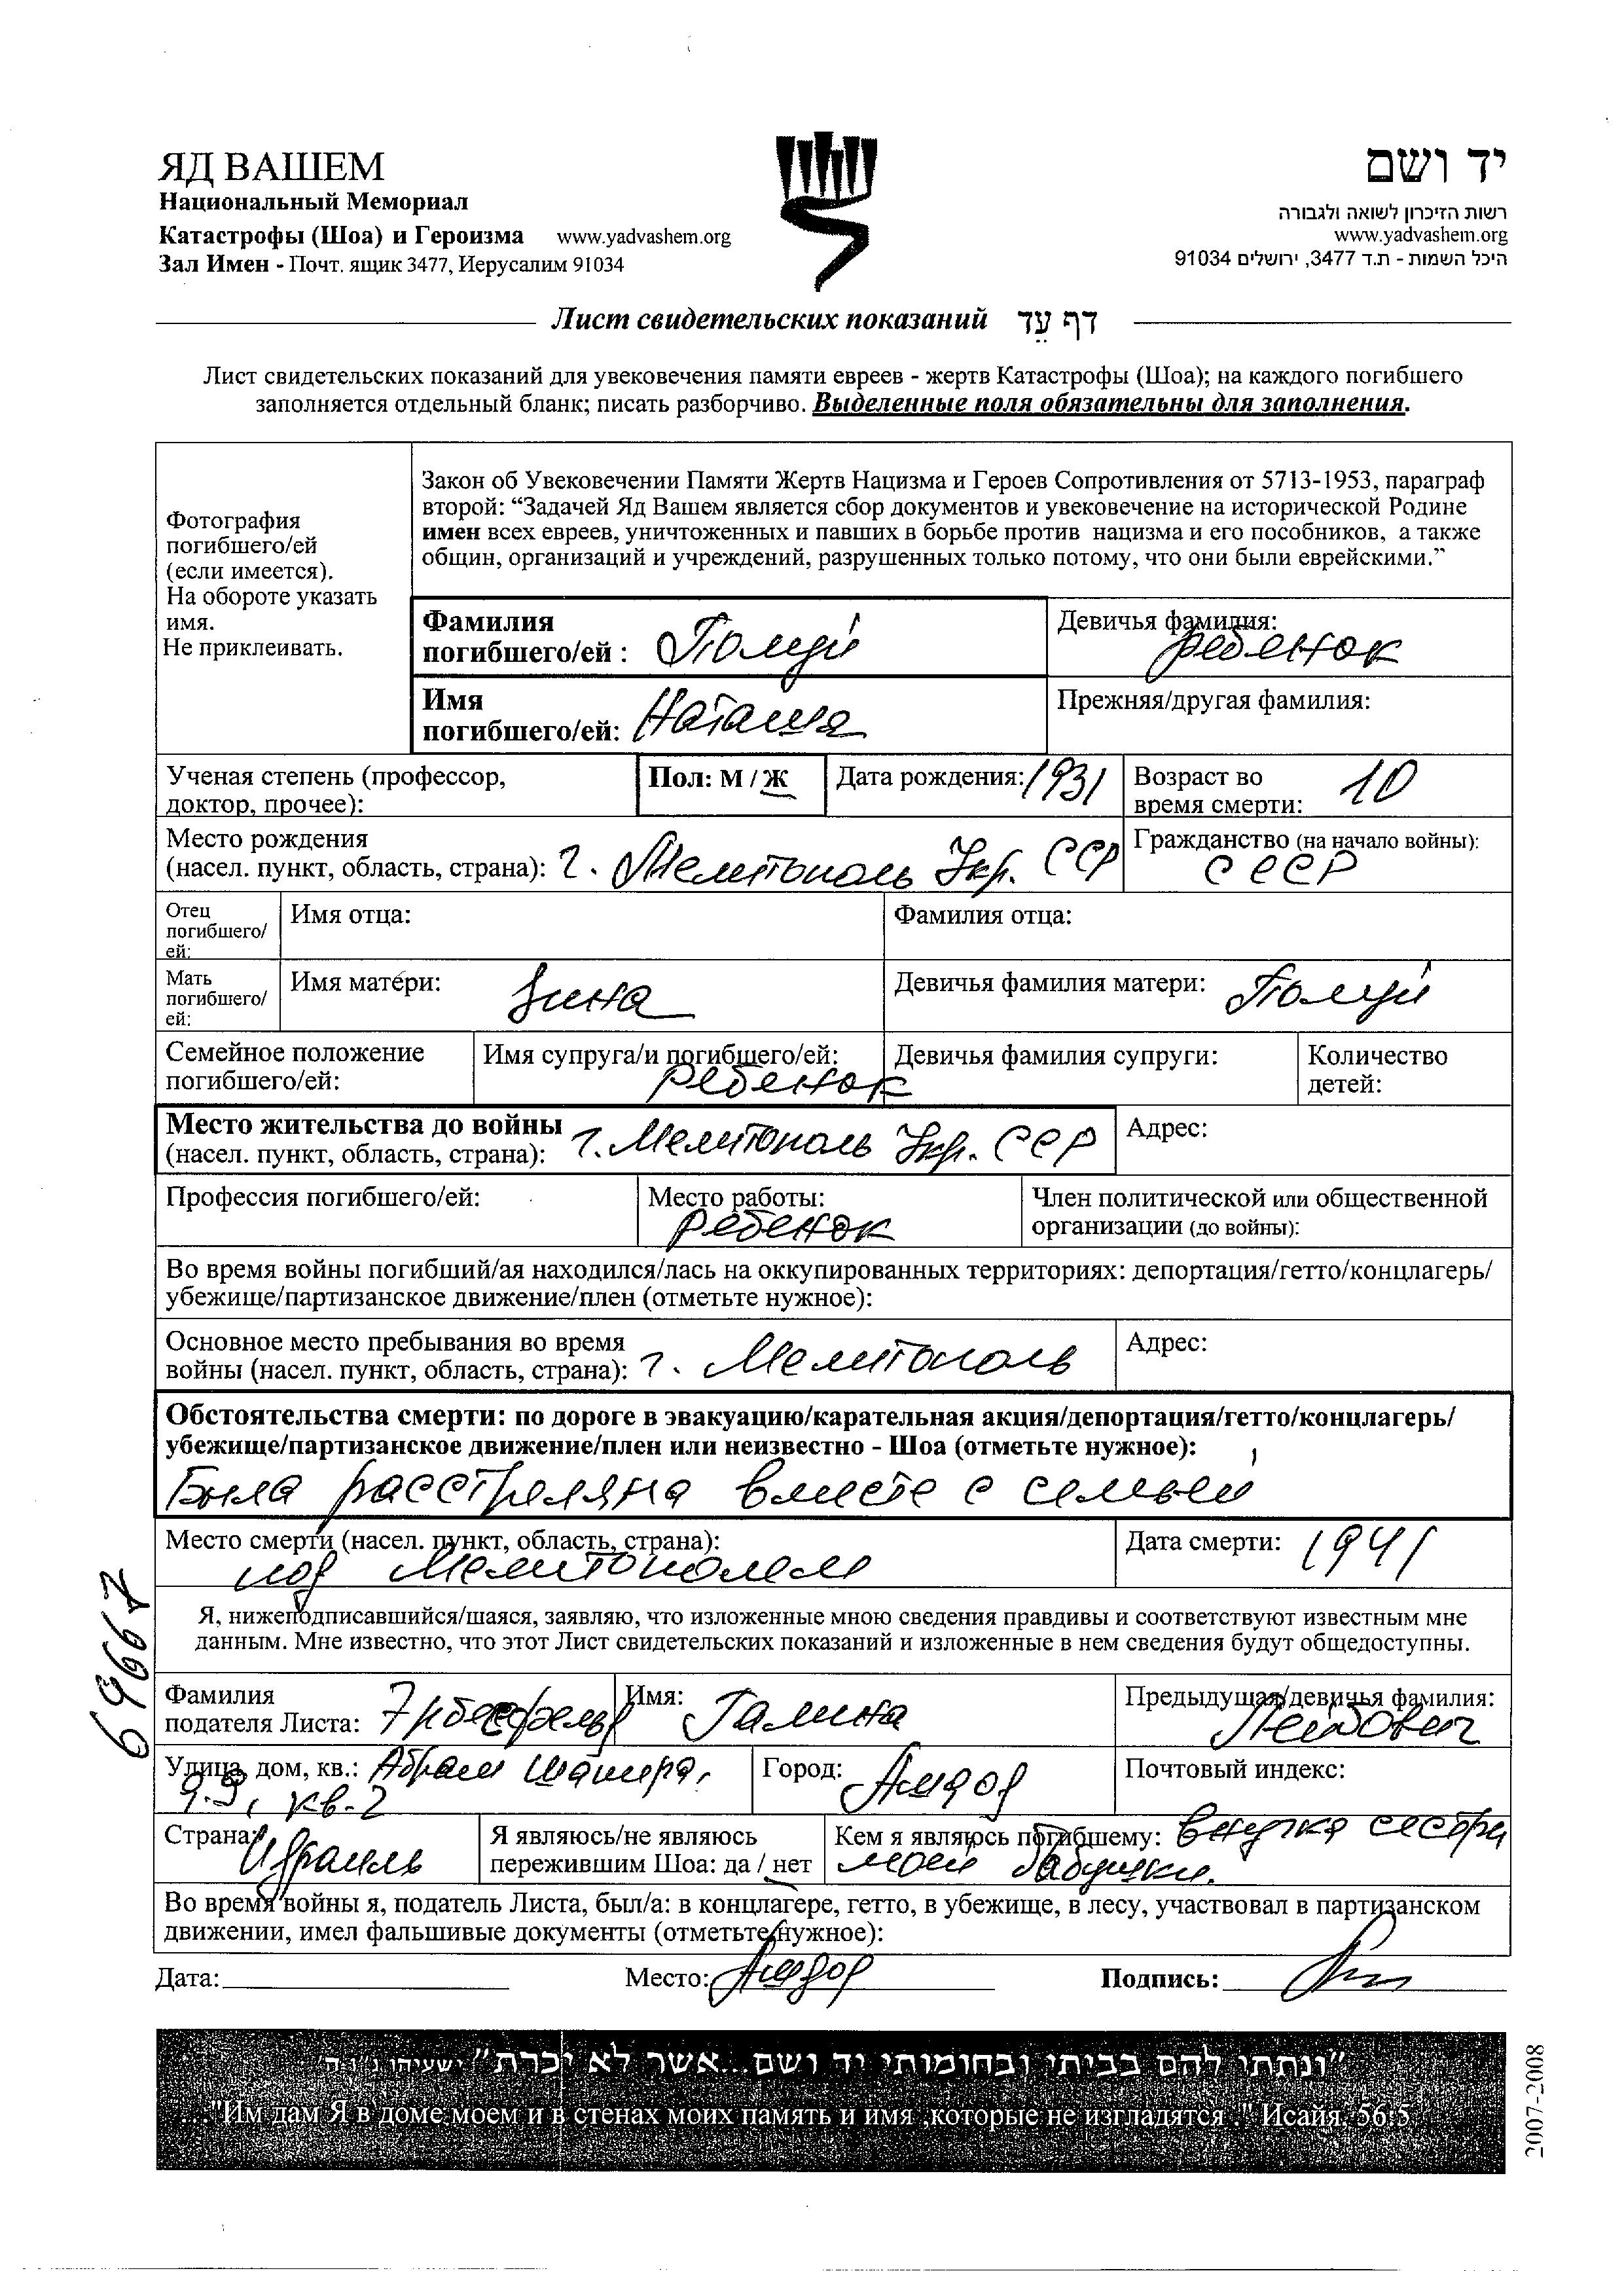 ЯД ВАШЕМ
Национальный Мемориал
Катастрофы (Шоа) и Героизма www.yadvashem.org
Зал Имен - Почт. ящик 3477, Иерусалим 91034
יד ושם
רשות הזיכרון לשואה ולגבורה
www.yadvashem.org
היכל השמות - ת.ד 3477, ירושלים 91034
Лист свидетельских показаний דף עֵד
Лист свидетельских показаний для увековечения памяти евреев - жертв Катастрофы (Шоа); на каждого погибшего
заполняется отдельный бланк; писать разборчиво. Выделенные поля обязательны для заполнения.
Фотография
погибшего/ей
(если имеется).
На обороте указать
имя.
Не приклеивать.
Закон об Увековечении Памяти Жертв Нацизма и Героев Сопротивления от 5713-1953, параграф
второй: “Задачей Яд Вашем является сбор документов и увековечение на исторической Родине
имен всех евреев, уничтоженных и павших в борьбе против нацизма и его пособников, а также
общин, организаций и учреждений, разрушенных только потому, что они были еврейскими.”
Фамилия
погибшего/ей :
Девичья фамилия:
ребенок
Имя
погибшего/ей: Наташа
Прежняя/другая фамилия:
Ученая степень (профессор,
доктор, прочее):
Пол: М / Ж
Дата рождения: 1931
Возраст во
время смерти: 10
Место рождения
(насел. пункт, область, страна): г. Мелитополь Укр. ССР
Гражданство (на начало войны):
СССР
Отец
погибшего/
ей:
Имя отца:
Фамилия отца:
Мать
погибшего/
ей:
Имя матери: Зина
Девичья фамилия матери:
Семейное положение
погибшего/ей:
Имя супруга/и погибшего/ей:
ребенок
Девичья фамилия супруги:
Количество
детей:
Место жительства до войны
(насел. пункт, область, страна): г. Мелитополь Укр. ССР
Адрес:
Профессия погибшего/ей:
Место работы:
ребенок
Член политической или общественной
организации (до войны):
Во время войны погибший/ая находился/лась на оккупированных территориях: депортация/гетто/концлагерь/
убежище/партизанское движение/плен (отметьте нужное):
Основное место пребывания во время
войны (насел. пункт, область, страна): г. Мелитополь
Адрес:
Обстоятельства смерти: по дороге в эвакуацию/карательная акция/депортация/гетто/концлагерь/
убежище/партизанское движение/плен или неизвестно - Шоа (отметьте нужное):
Была расстреляна вместе с семьей
Место смерти (насел. пункт, область, страна):
под Мелитополем
Дата смерти: 1941
Я, нижеподписавшийся/шаяся, заявляю, что изложенные мною сведения правдивы и соответствуют известным мне
данным. Мне известно, что этот Лист свидетельских показаний и изложенные в нем сведения будут общедоступны.
69667
Фамилия
подателя Листа:
Имя: Галина
Предыдущая/девичья фамилия:
Лейбович
Улица, дом, кв.: Абрам Шапира,
кв. 2
Город:
Почтовый индекс:
Страна:
Израиль
Я являюсь/не являюсь
пережившим Шоа: да / нет
Кем я являюсь погибшему: внучка сестры
моей бабушки.
Во время войны я, податель Листа, был/а: в концлагере, гетто, в убежище, в лесу, участвовал в партизанском
движении, имел фальшивые документы (отметьте нужное):
Дата:
Место:
Подпись:
"ונתתי להם בביתי ובחומותי יד ושם...אשר לא יכרת" ישעיהו נ"ו ה'
..."Им дам Я в доме моем и в стенах моих память и имя ,которые не изгладятся ." Исайя. 56:5
2007-2008